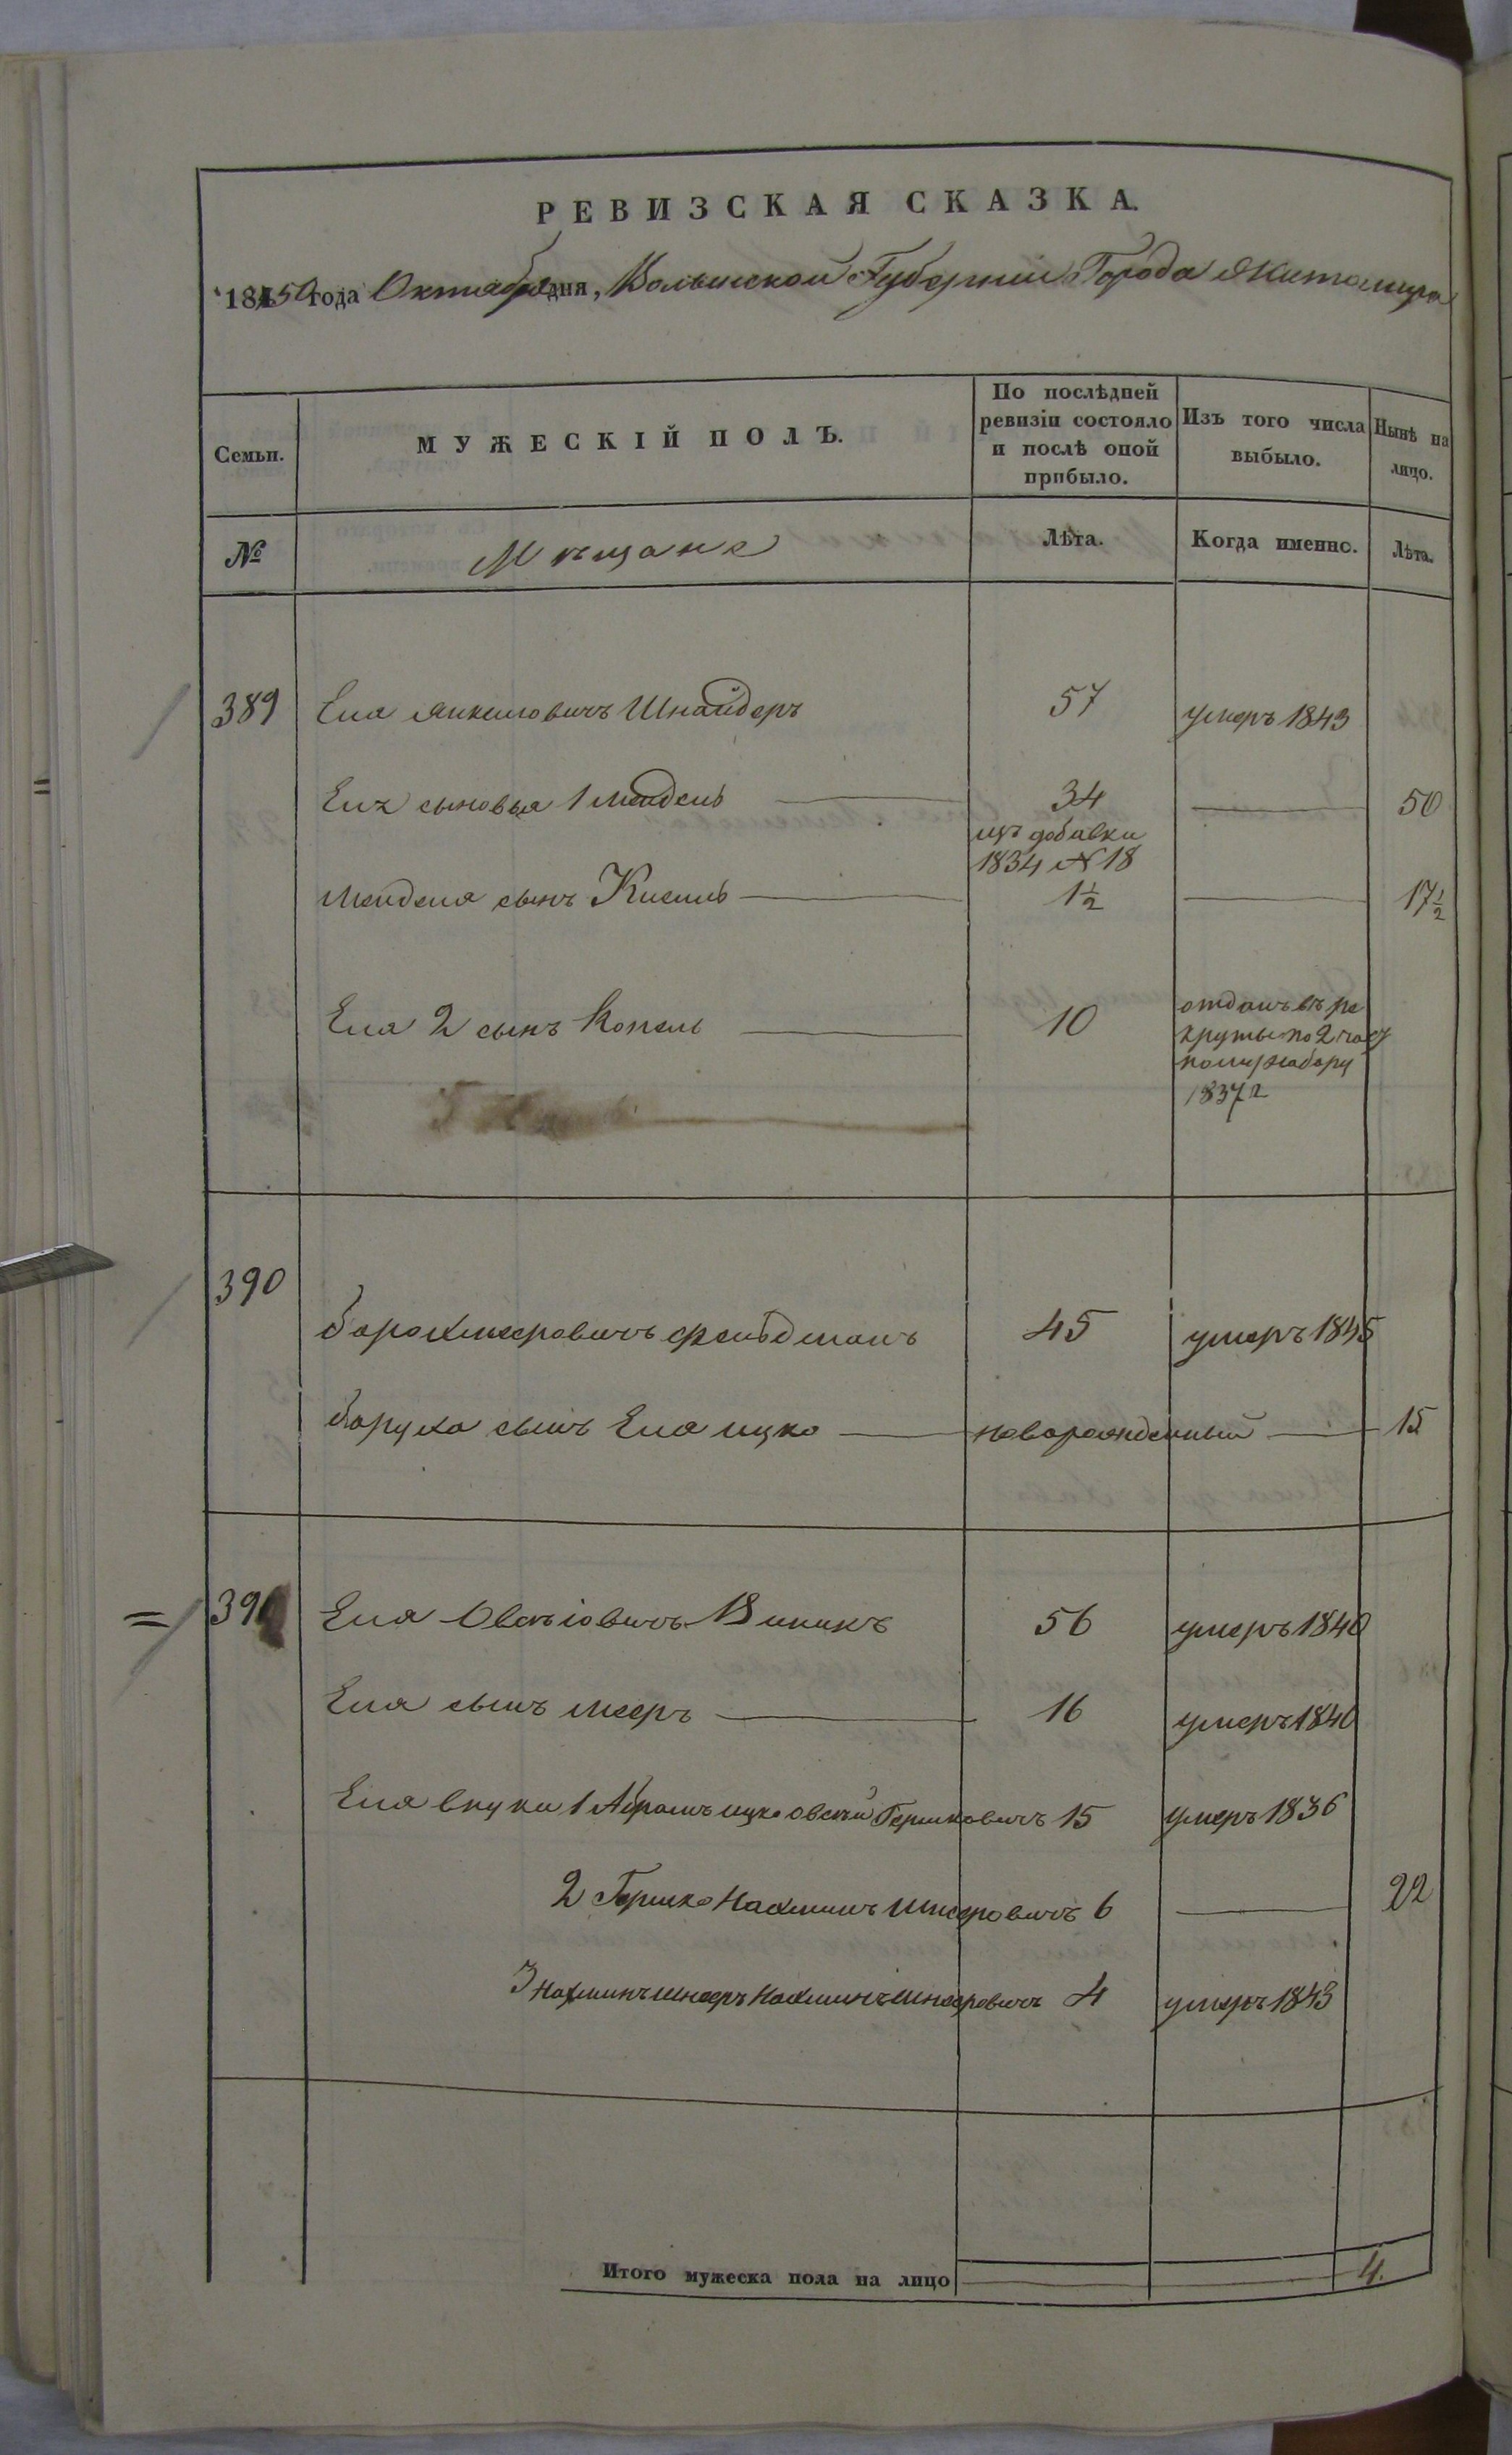 РЕВИЗСКАЯ СКАЗКА.
1850 года Октября дня, Волынской Губернии Города Житомира
Семьи.
МУЖЕСКІЙ ПОЛЪ.
По послѣдней ревизіи состояло и послѣ оной прибыло.
Изъ того числа выбыло.
Нынѣ на лицо.
№
Мѣщане
Лѣта.
Когда именно.
Лѣта.
389 Еля Янкелевичъ Шнайдеръ 57 умеръ 1843
Еля сыновья 1 Мендель 34 50
изъ добавки
1834 № 18
Менделя сынъ Кисель 1½ 17½
Еля 2 сынъ Копель 10 отданъ въ ре
круты по 2 част
ному набору
1837 г
390
Борох Мееровичъ Фельдманъ 45 умеръ 1845
Баруха сынъ Еля Ицко новорожденный 15
391 Еля Овсѣіовичъ Виникъ 56 умеръ 1840
Еля сынъ Мееръ 16 умеръ 1840
Еля внуки 1 Абрамъ Ицко Овсѣй Гершковичъ 15 умеръ 1836
2 Гершко Нахманъ Шнееровичъ 6 22
3 Нахманъ Шнееръ Нахманъ Шнееровичъ 4 умеръ 1843
Итого мужеска пола на лицо 4.